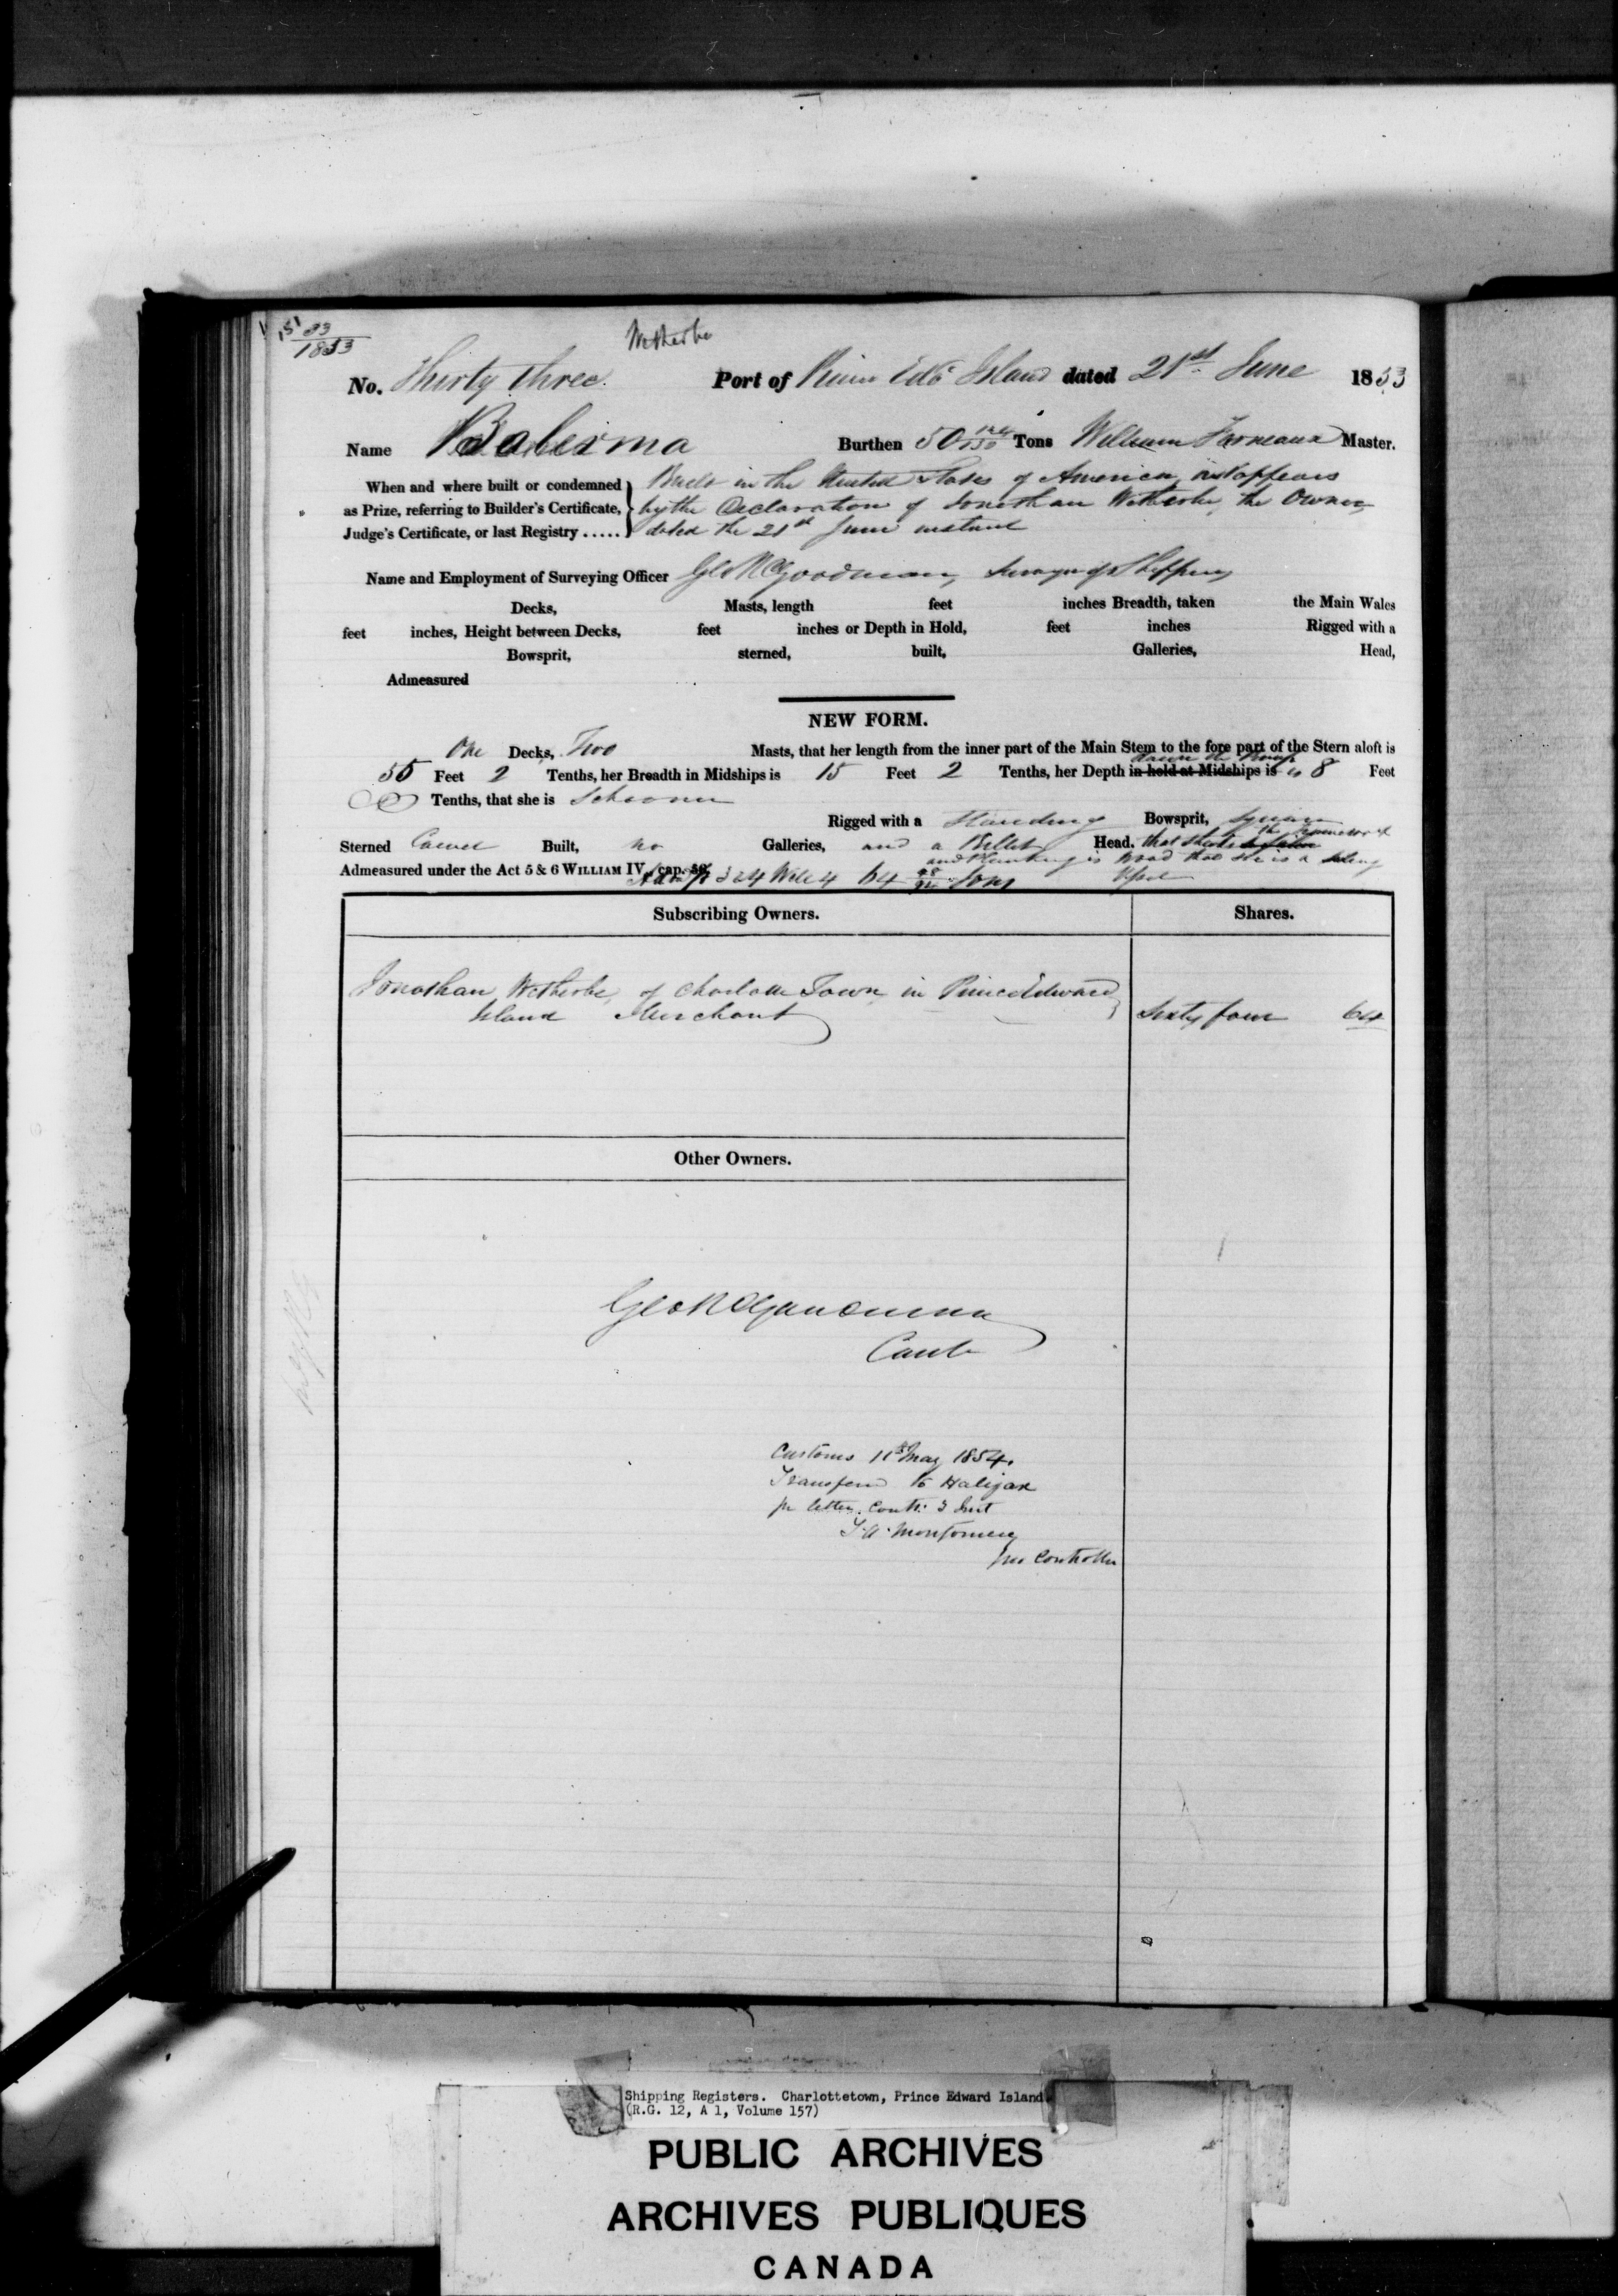 33
1853
Wetherbe
No. Thirty three. Port of Prince Edd Island dated 21st June 1853
Name Balerma Burthen 50 Tons William Furneaux Master.
When and where built or condemned as Prize, referring to Builder's Certificate, Judge's Certificate, or last Registry .....
Built in the United States of America, as it appears
by the Declaration of Jonathan Wetherbe, the Owner,
dated the 21st June instant
Name and Employment of Surveying Officer Geo R Goodman, Surveyor of Shipping
Decks, Masts, length feet inches Breadth, taken the Main Wales
feet inches, Height between Decks, feet inches or Depth in Hold, feet inches Rigged with a
Bowsprit, sterned, built, Galleries, Head,
Admeasured
NEW FORM.
One Decks, Two Masts, that her length from the inner part of the Main Stem to the fore part of the Stern aloft is
55 Feet 2 Tenths, her Breadth in Midships is 15 Feet 2 Tenths, her Depth in hold at Midships is 8 Feet
Tenths, that she is Schooner
Rigged with a Standing Bowsprit, Square
Sterned Carvel Built, no Galleries, and a Billet Head. that the framework
and Planking is Wood that she is a
Admeasured under the Act 5 & 6 WILLIAM IV, cap. 56, 3 & 4 Will 4 64 Tons
Subscribing Owners. Shares.
Jonathan Wetherbe, of Charlotte Town in Prince Edward
Island Merchant Sixty four 64
Other Owners.
Geo R Goodman
Contr
Customs 11th May 1854.
Transferred to Halifax
pr letter Contr: 3 Inst
T. A. Montgomery
Controller
Shipping Registers. Charlottetown, Prince Edward Island
(R.G. 12, A 1, Volume 157)
PUBLIC ARCHIVES
ARCHIVES PUBLIQUES
CANADA